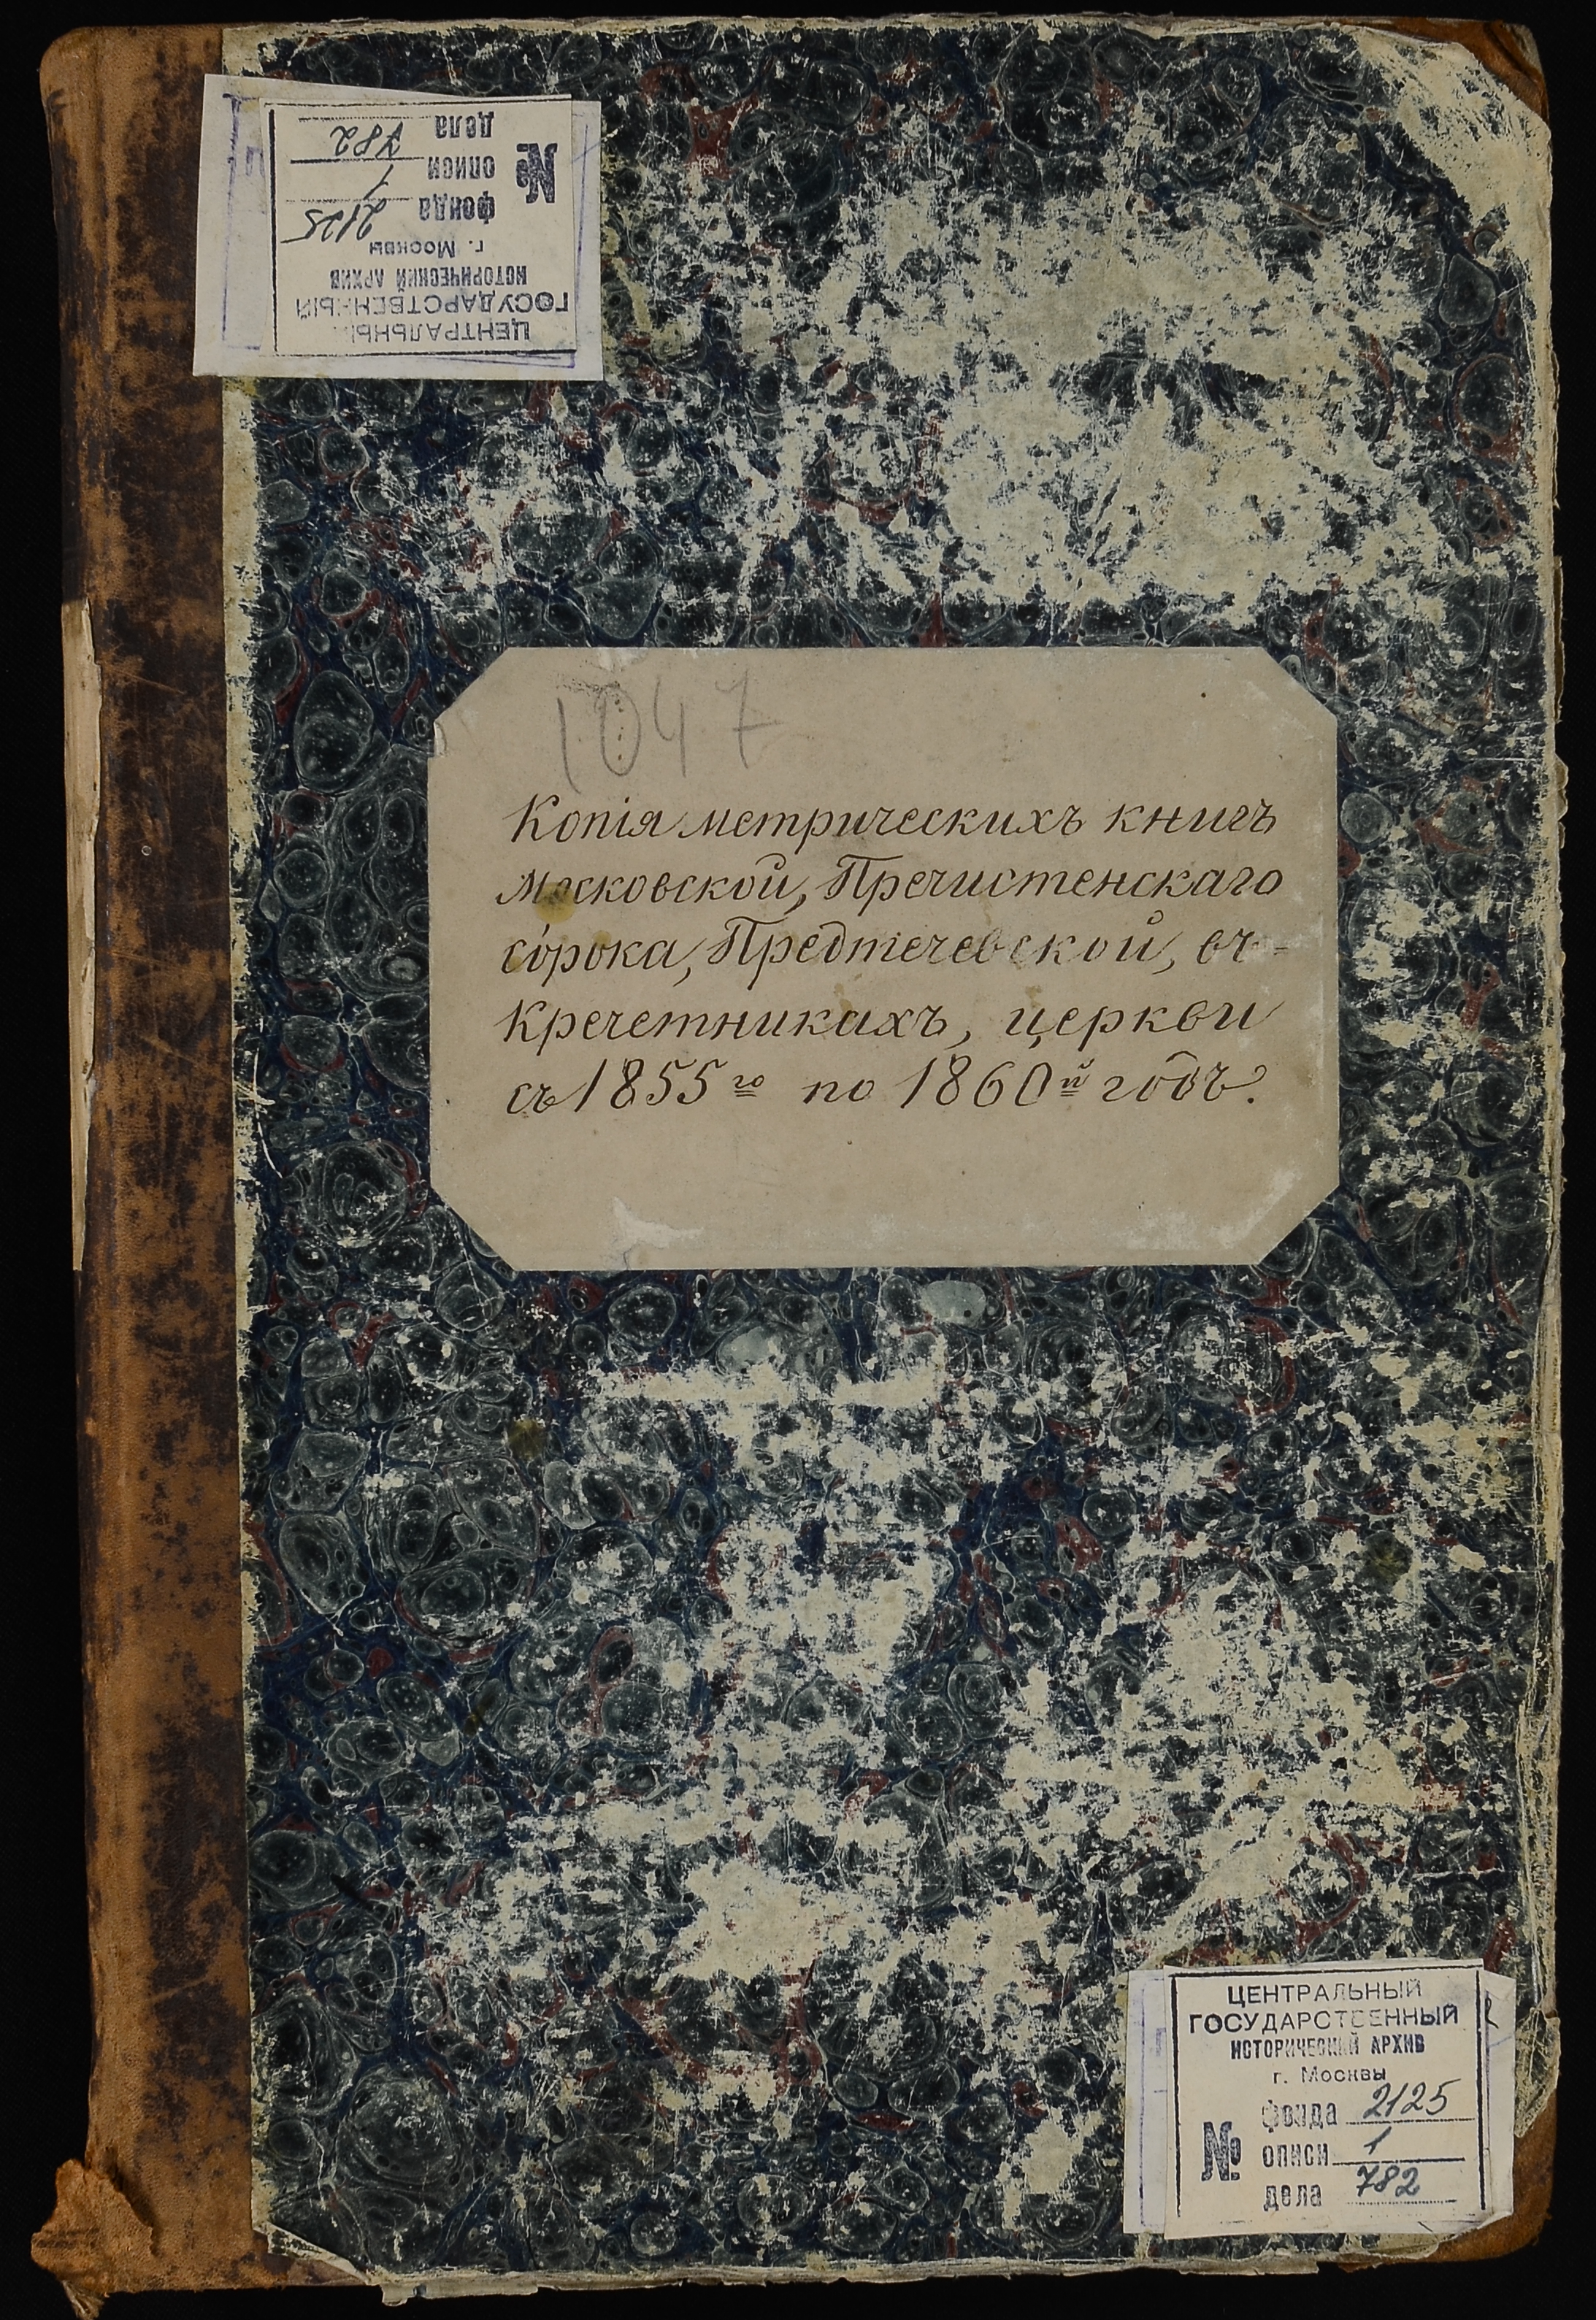 ЦЕНТРАЛЬНЫЙ
ГОСУДАРСТВЕННЫЙ
ИСТОРИЧЕСКИЙ АРХИВ
г. Москвы
№
фонда 2125
описи 1
дела 782
1047
Копія метрическихъ книгъ
Московской, Пречистенскаго
сорока, Предтечевской, въ-
Кречетникахъ, церкви
съ 1855го по 1860й годъ.
ЦЕНТРАЛЬНЫЙ
ГОСУДАРСТВЕННЫЙ
ИСТОРИЧЕСКИЙ АРХИВ
г. Москвы
№
фонда 2125
описи 1
дела 782